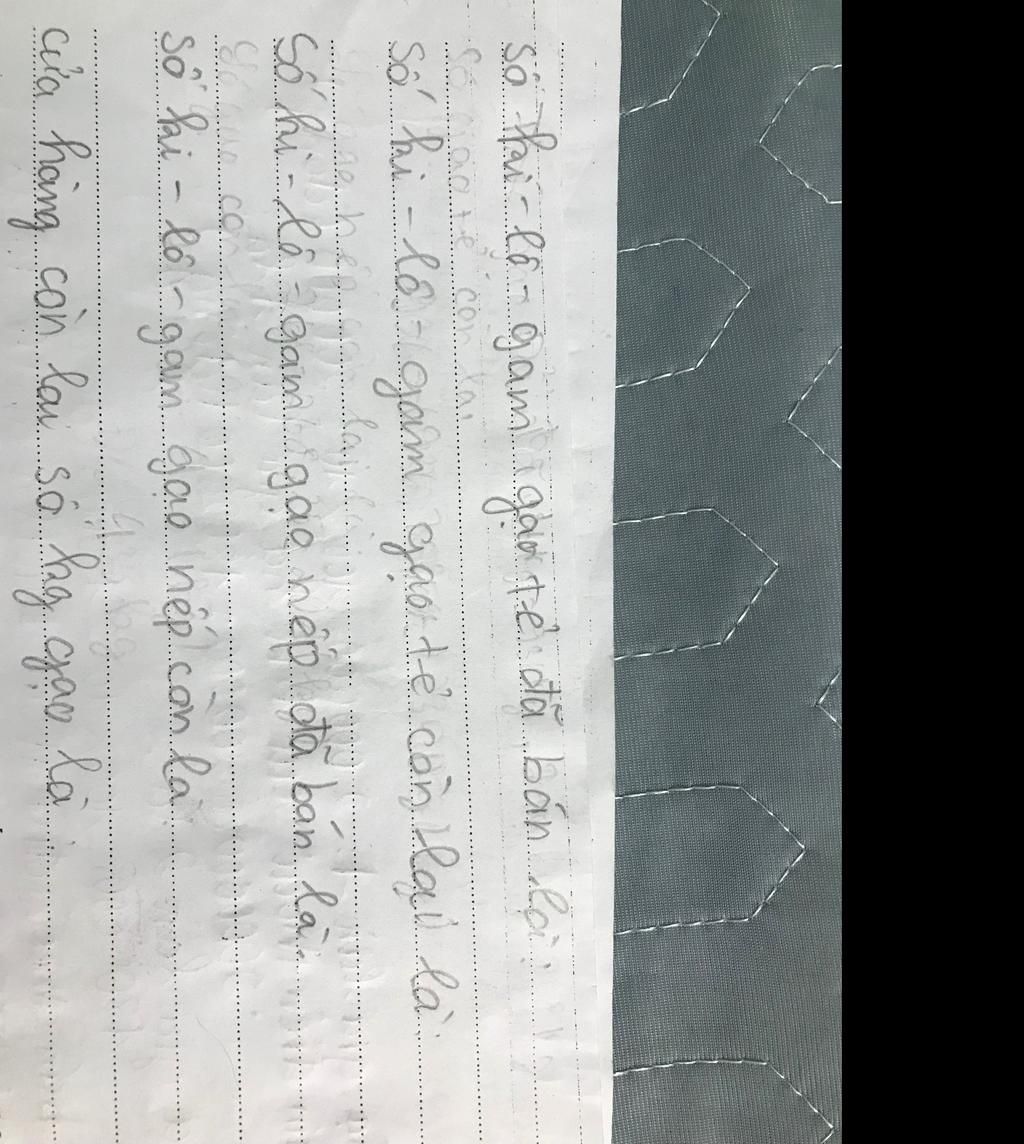 số ki-lô-gam gạo tẻ đã bán là:
Số ki-lô-gam gạo tẻ còn lại là:
Số ki-lô-gam gạo nếp đã bán là:
Số ki-lô-gam gạo nếp còn là:
cửa hàng còn lại số kg gạo là